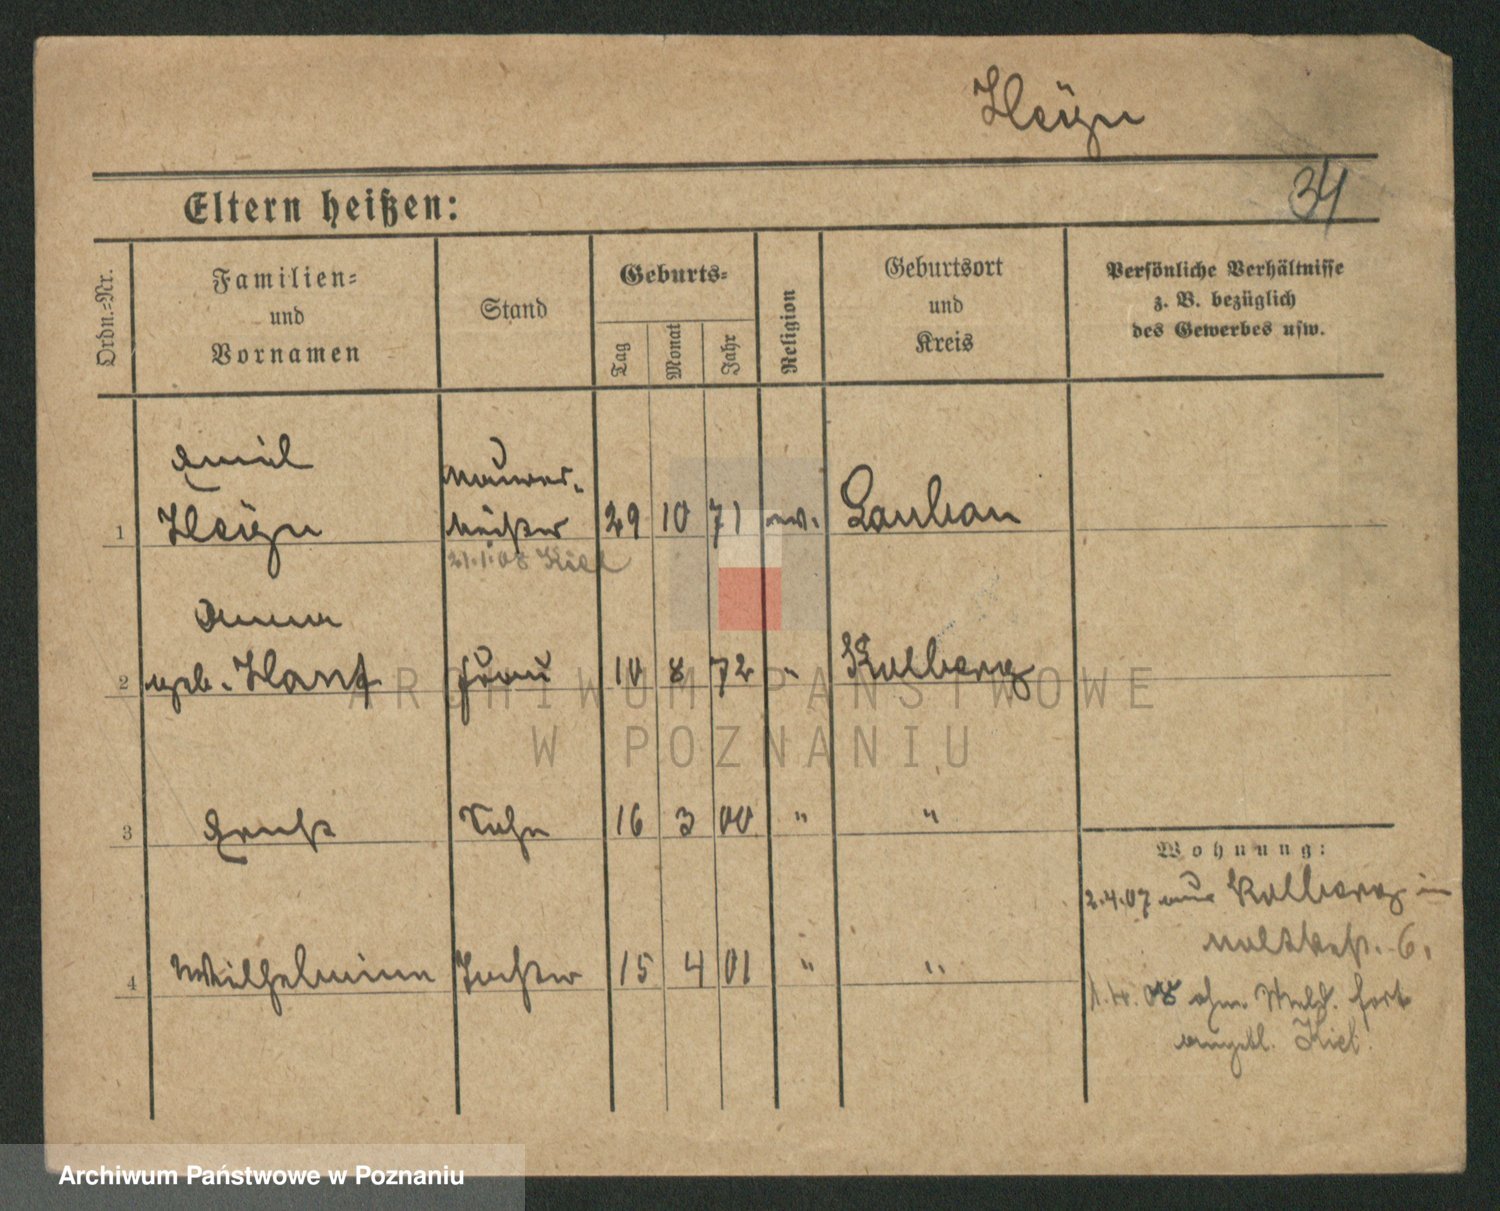 Heÿn
Eltern heißen:
34
Ordn.=Nr.
Familien=
und
Vornamen
Stand
Geburts=
Tag
Monat
Jahr
Religion
Geburtsort
und
Kreis
Persönliche Verhältnisse
z. B. bezüglich
des Gewerbes usw.
Emil
Maurer-
1 Heÿn meister 29 10 71 ev. Lauban
21.1.08 Kiel
Anna
2 geb. Hanf Frau 10 8 72 " Kolberg
ARCHIWUM PAŃSTWOWE
W POZNANIU
3 Ernst Sohn 16 3 00 " "
Wohnung:
2.4.07 aus Kolberg in
Moltkestr. 6.
4 Wilhelmine Tochter 15 4 01 " "
08 ohne Meld. fort
angebl. Kiel.
Archiwum Państwowe w Poznaniu